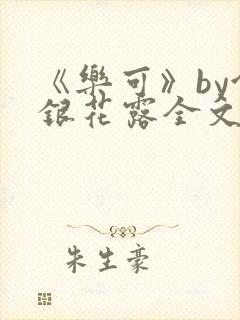 《樂可》by
銀花露全文
朱生豪